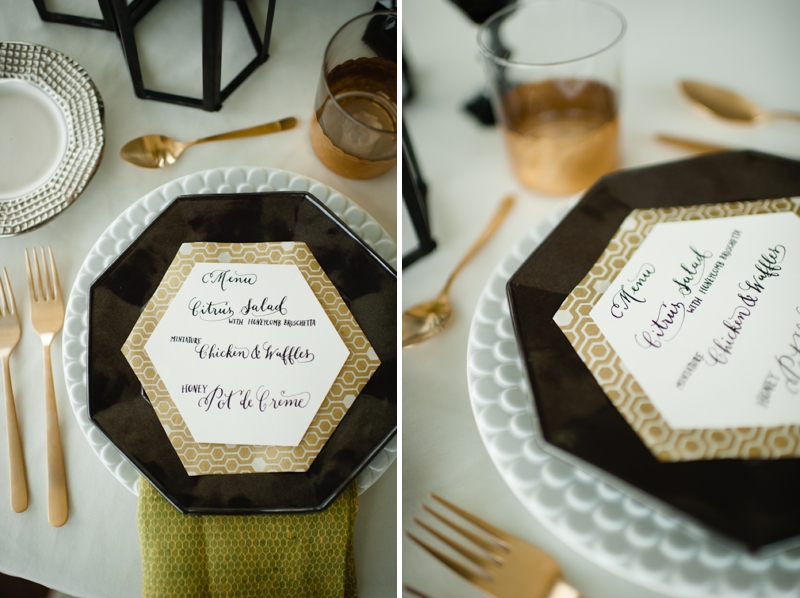 Menu
Citrus Salad
WITH HONEYCOMB BRUSCHETTA
MINIATURE Chicken & Waffles
HONEY Pot de Crème
Menu
Citrus Salad
WITH HONEYCOMB BRUSCHETTA
MINIATURE Chicken & Waffles
HONEY Pot